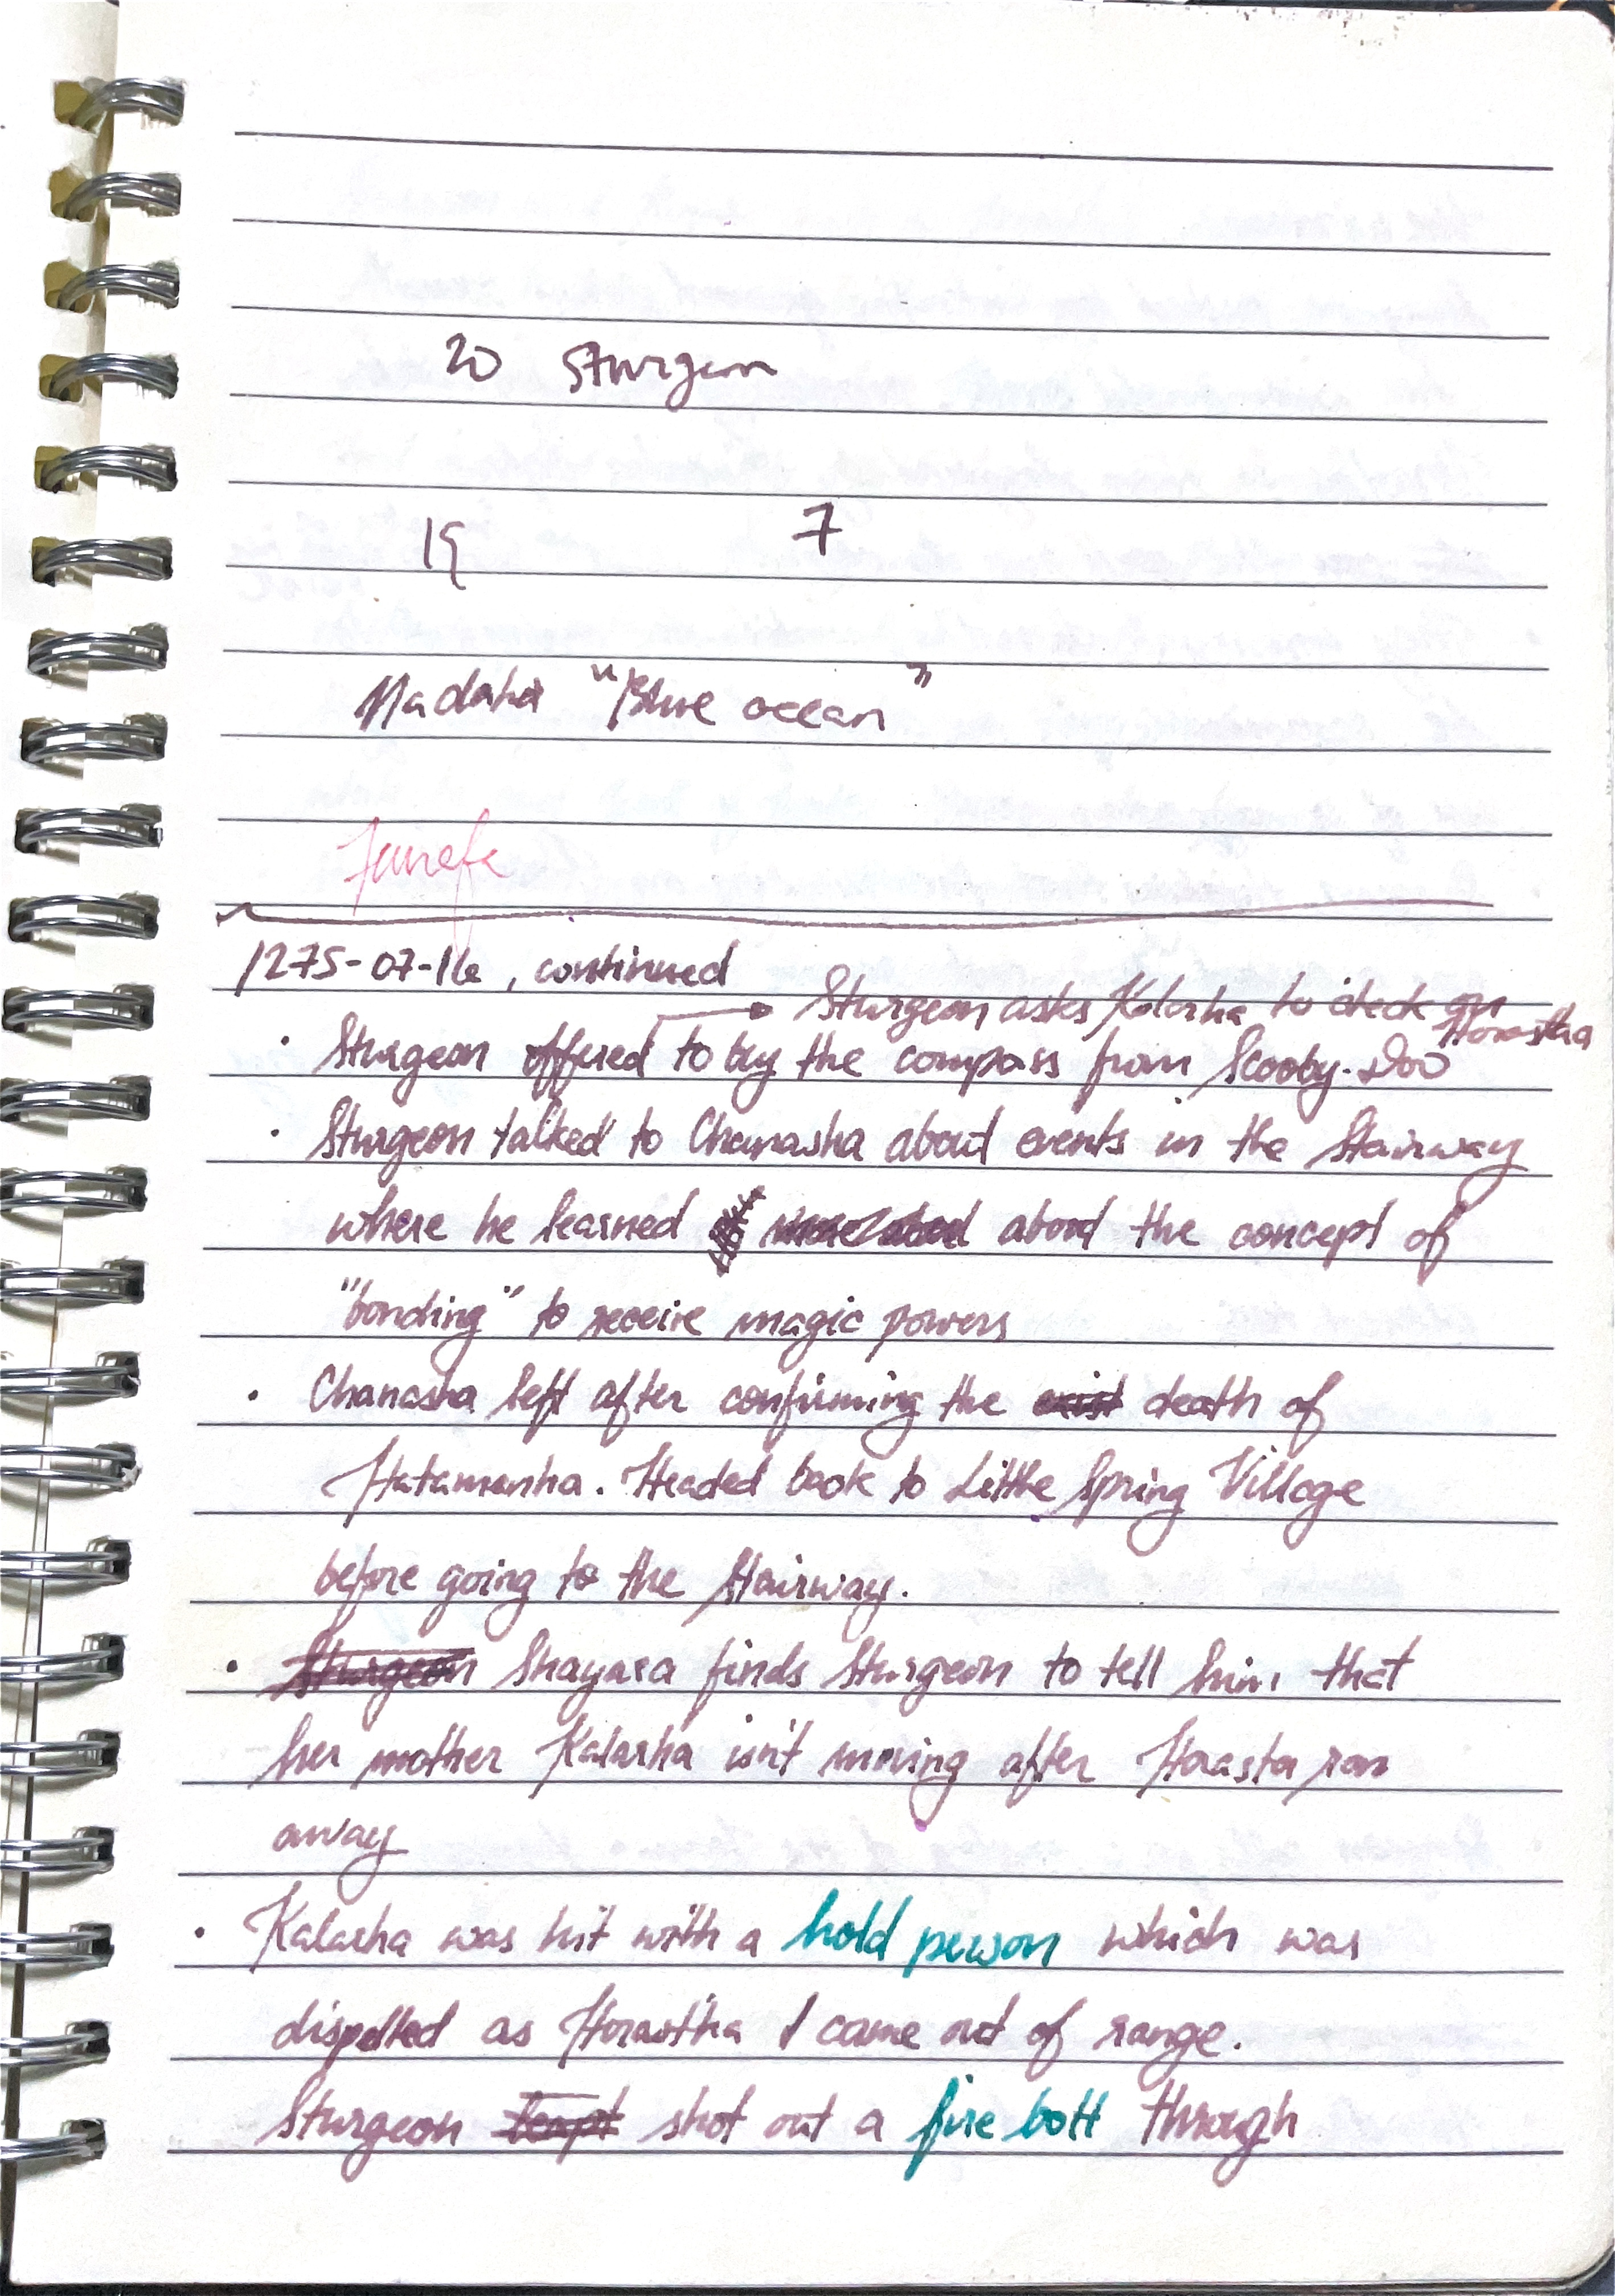 20 Sturgeon
19 7
Madaha "Blue ocean"
1275-07-16, continued
Sturgeon asks Kalasha to check on
Horastha
• Sturgeon offered to buy the compass from Scooby-Doo
• Sturgeon talked to Chanasha about events in the Stairway
where he learned about the concept of
"bonding" to receive magic powers
• Chanasha left after confirming the exist death of
Hatamansha. Headed back to Little Spring Village
before going to the Stairway.
• Sturgeon Shayasa finds Sturgeon to tell him that
her mother Kalasha isn't moving after Horasta ran
away
• Kalasha was hit with a hold person which was
dispelled as Horastha came out of range.
Sturgeon shot out a fire bolt through